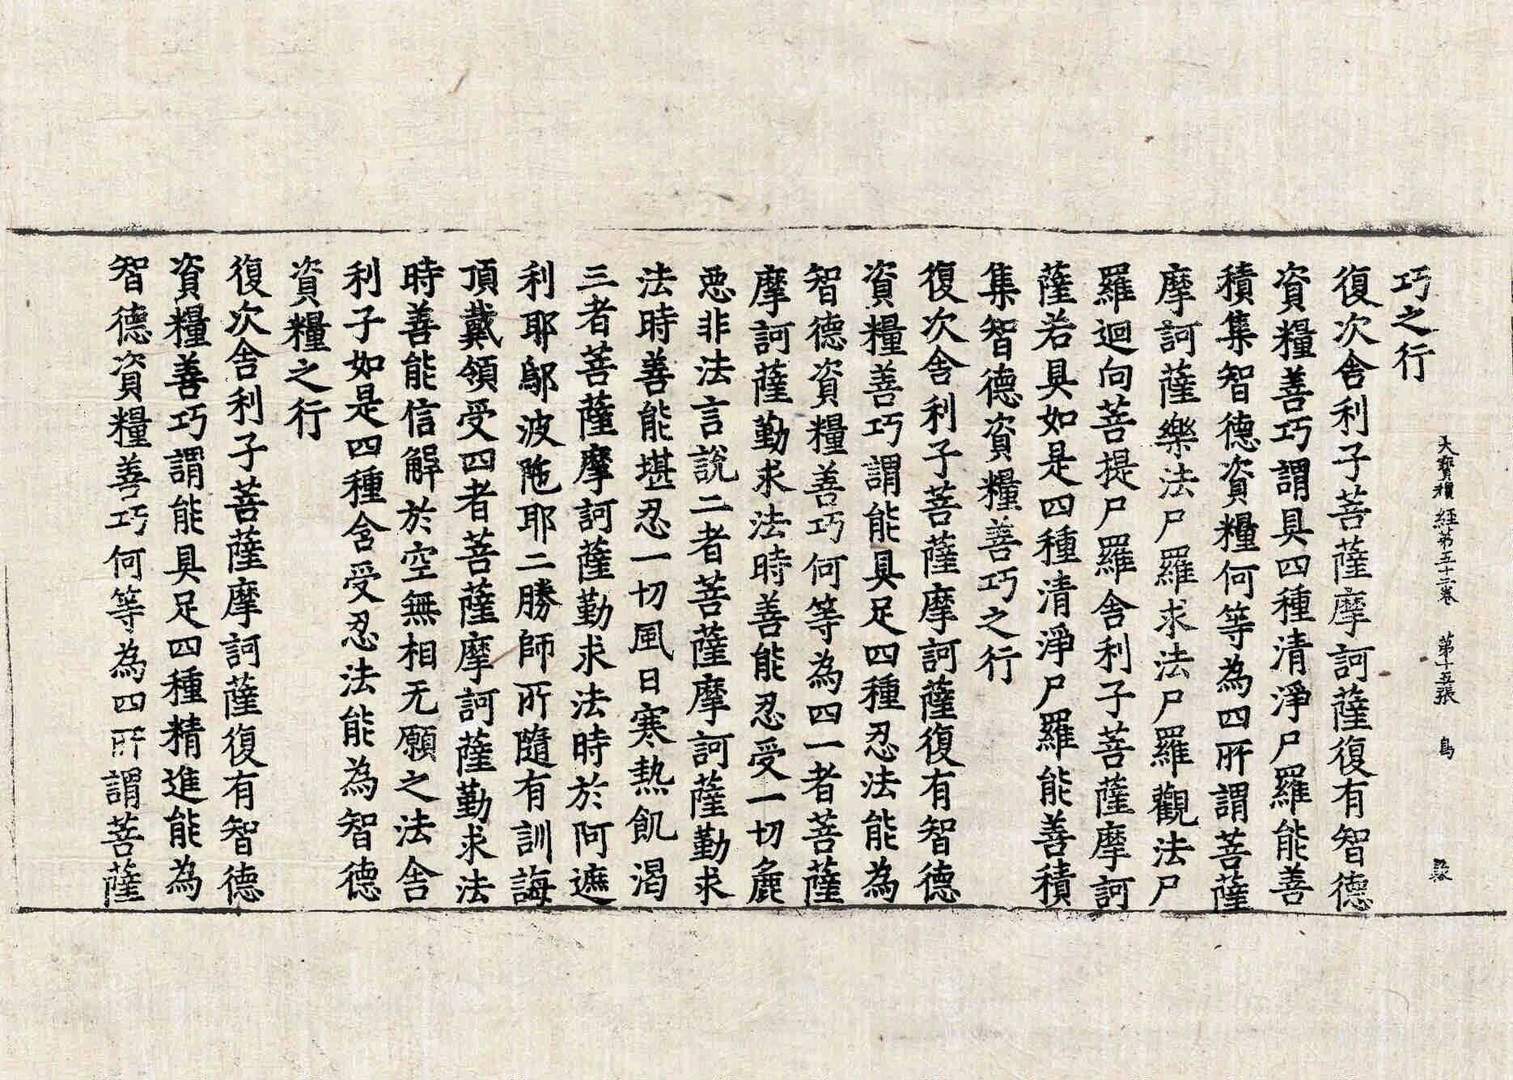 大寶積經第五十三卷 第十五張 鳥
巧之行
復次舍利子菩薩摩訶薩復有智德
資糧善巧謂具四種清淨尸羅能善
積集智德資糧何等為四所謂菩薩
摩訶薩樂法尸羅求法尸羅觀法尸
羅迴向菩提尸羅舍利子菩薩摩訶
薩若具如是四種清淨尸羅能善積
集智德資糧善巧之行
復次舍利子菩薩摩訶薩復有智德
資糧善巧謂能具足四種忍法能為
智德資糧善巧何等為四一者菩薩
摩訶薩勤求法時善能忍受一切麁
惡非法言說二者菩薩摩訶薩勤求
法時善能堪忍一切風日寒熱飢渴
三者菩薩摩訶薩勤求法時於阿遮
利耶鄔波陁耶二勝師所隨有訓誨
頂戴領受四者菩薩摩訶薩勤求法
時善能信解於空無相无願之法舍
利子如是四種含受忍法能為智德
資糧之行
復次舍利子菩薩摩訶薩復有智德
資糧善巧謂能具足四種精進能為
智德資糧善巧何等為四所謂菩薩